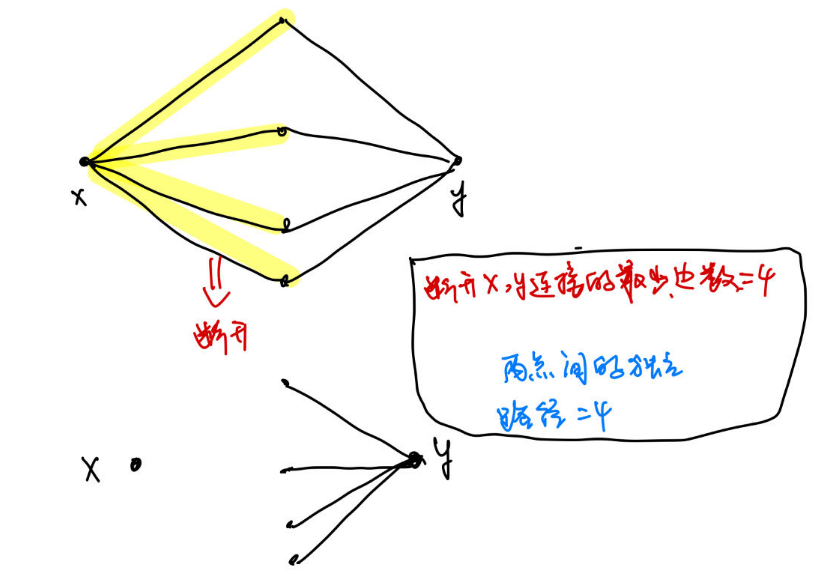 x
y
断开
断开x,y连接的最少边数=4
两点间的独立
路径=4
X
y